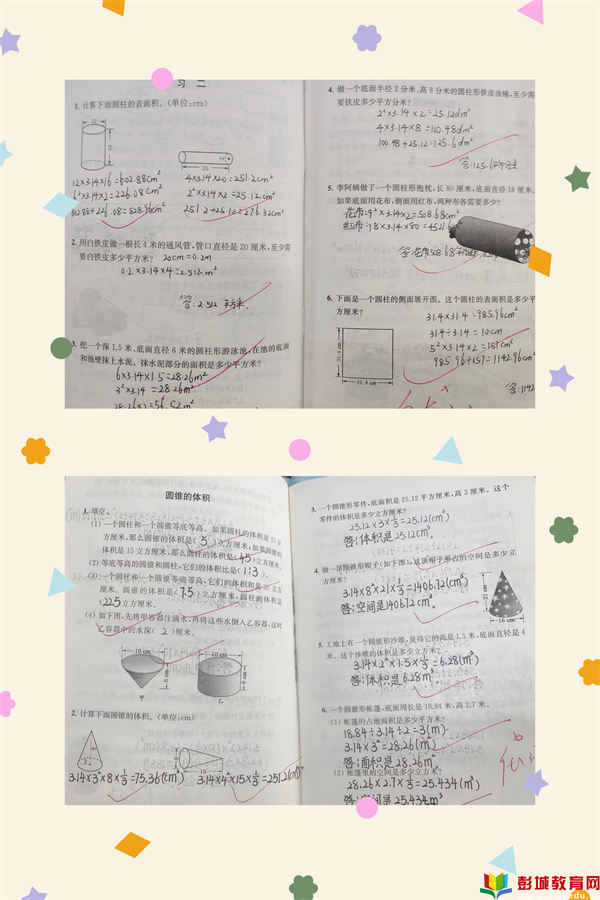 习 二
1. 计算下面圆柱的表面积。(单位:cm)
12×3.14×16=602.88cm²
6²×3.14×2=226.08cm²
602.88+226.08=828.96cm²
20
4×3.14×20=251.2cm²
2²×3.14×2=25.12cm²
251.2+25.12=276.32cm²
2. 用白铁皮做一根长 4 米的通风管,管口直径是 20 厘米,至少需
要白铁皮多少平方米? 20cm=0.2m
0.2×3.14×4=2.512m²
答:2.512平方米.
3. 挖一个深 1.5 米、底面直径 6 米的圆柱形游泳池,在池的底面
和池壁抹上水泥。抹水泥部分的面积是多少平方米?
6×3.14×1.5=28.26m²
3²×3.14=28.26m²
28.26×2=56.52m²
4. 做一个底面半径 2 分米、高 8 分米的圆柱形铁皮油桶,至少需
要铁皮多少平方分米?
2²×3.14×2=25.12dm²
4×3.14×8=100.48dm²
100.48+25.12=125.6dm²
答:125.6平方分米.
5. 李阿姨做了一个圆柱形抱枕,长 80 厘米,底面直径 18 厘米,
如果底面用花布,侧面用红布,两种布各需要多少?
花布:9²×3.14×2=508.68cm²
红布:18×3.14×80=4521.6
6. 下面是一个圆柱的侧面展开图。这个圆柱的表面积是多少平
方厘米?
31.4 cm
31.4 cm
31.4×31.4=985.96cm²
31.4÷3.14=10cm
5²×3.14×2=157cm²
985.96+157=1142.96cm²
答:1142
圆锥的体积
1. 填空。
(1) 一个圆柱和一个圆锥等底等高。如果圆柱的体积是 15 立
方厘米,那么圆锥的体积是( 5 )立方厘米;如果圆锥的
体积是 15 立方厘米,那么圆柱的体积是( 45 )立方厘米。
(2) 等底等高的圆锥和圆柱,它们的体积比是( 1:3 )。
(3) 一个圆柱和一个圆锥等底等高,它们的体积和是 30 立方
厘米。圆锥的体积是( 7.5 )立方厘米,圆柱的体积是
( 22.5 )立方厘米。
(4) 如下图,先将甲容器注满水,再将这些水倒入乙容器,这时
乙容器中的水深( 2 )厘米。
10 cm
10 cm
甲
乙
2. 计算下面圆锥的体积。(单位:cm)
15
3.14×3²×8×⅓=75.36(cm³)
3.14×4²×15×⅓=251.2(cm³)
3. 一个圆锥形零件,底面积是 25.12 平方厘米,高 3 厘米。这个
零件的体积是多少立方厘米?
25.12×3×⅓=25.12(cm³)
答:体积是25.12cm³.
4. 做一顶圆锥形帽子(如下图),这顶帽子所占的空间是多少立
方厘米?
3.14×8²×21×⅓=1406.72(cm³)
答:空间是1406.72cm³.
16 cm
5. 工地上有一个圆锥形沙堆,量得它的高是 1.5 米,底面直径是 4
米。这个沙堆的体积是多少立方米?
3.14×2²×1.5×⅓=6.28(m³)
答:体积是6.28m³
6. 一个圆锥形帐篷,底面周长是 18.84 米,高 2.7 米。
(1) 帐篷的占地面积是多少平方米?
18.84÷3.14÷2=3(m)
3.14×3²=28.26(m²)
答:面积是28.26m²
(2) 帐篷里的空间是多少立方米?
28.26×2.7×⅓=25.434(m³)
答:空间是25.434m³
彭城教育网